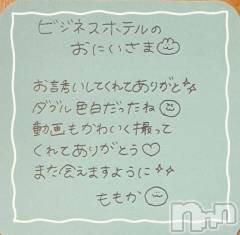 ビジネスホテルの
おにいさま
お誘いしてくれてありがと
ダブル色白だったね
動画もかわいく撮って
くれてありがとう♡
また会えますように
ももか